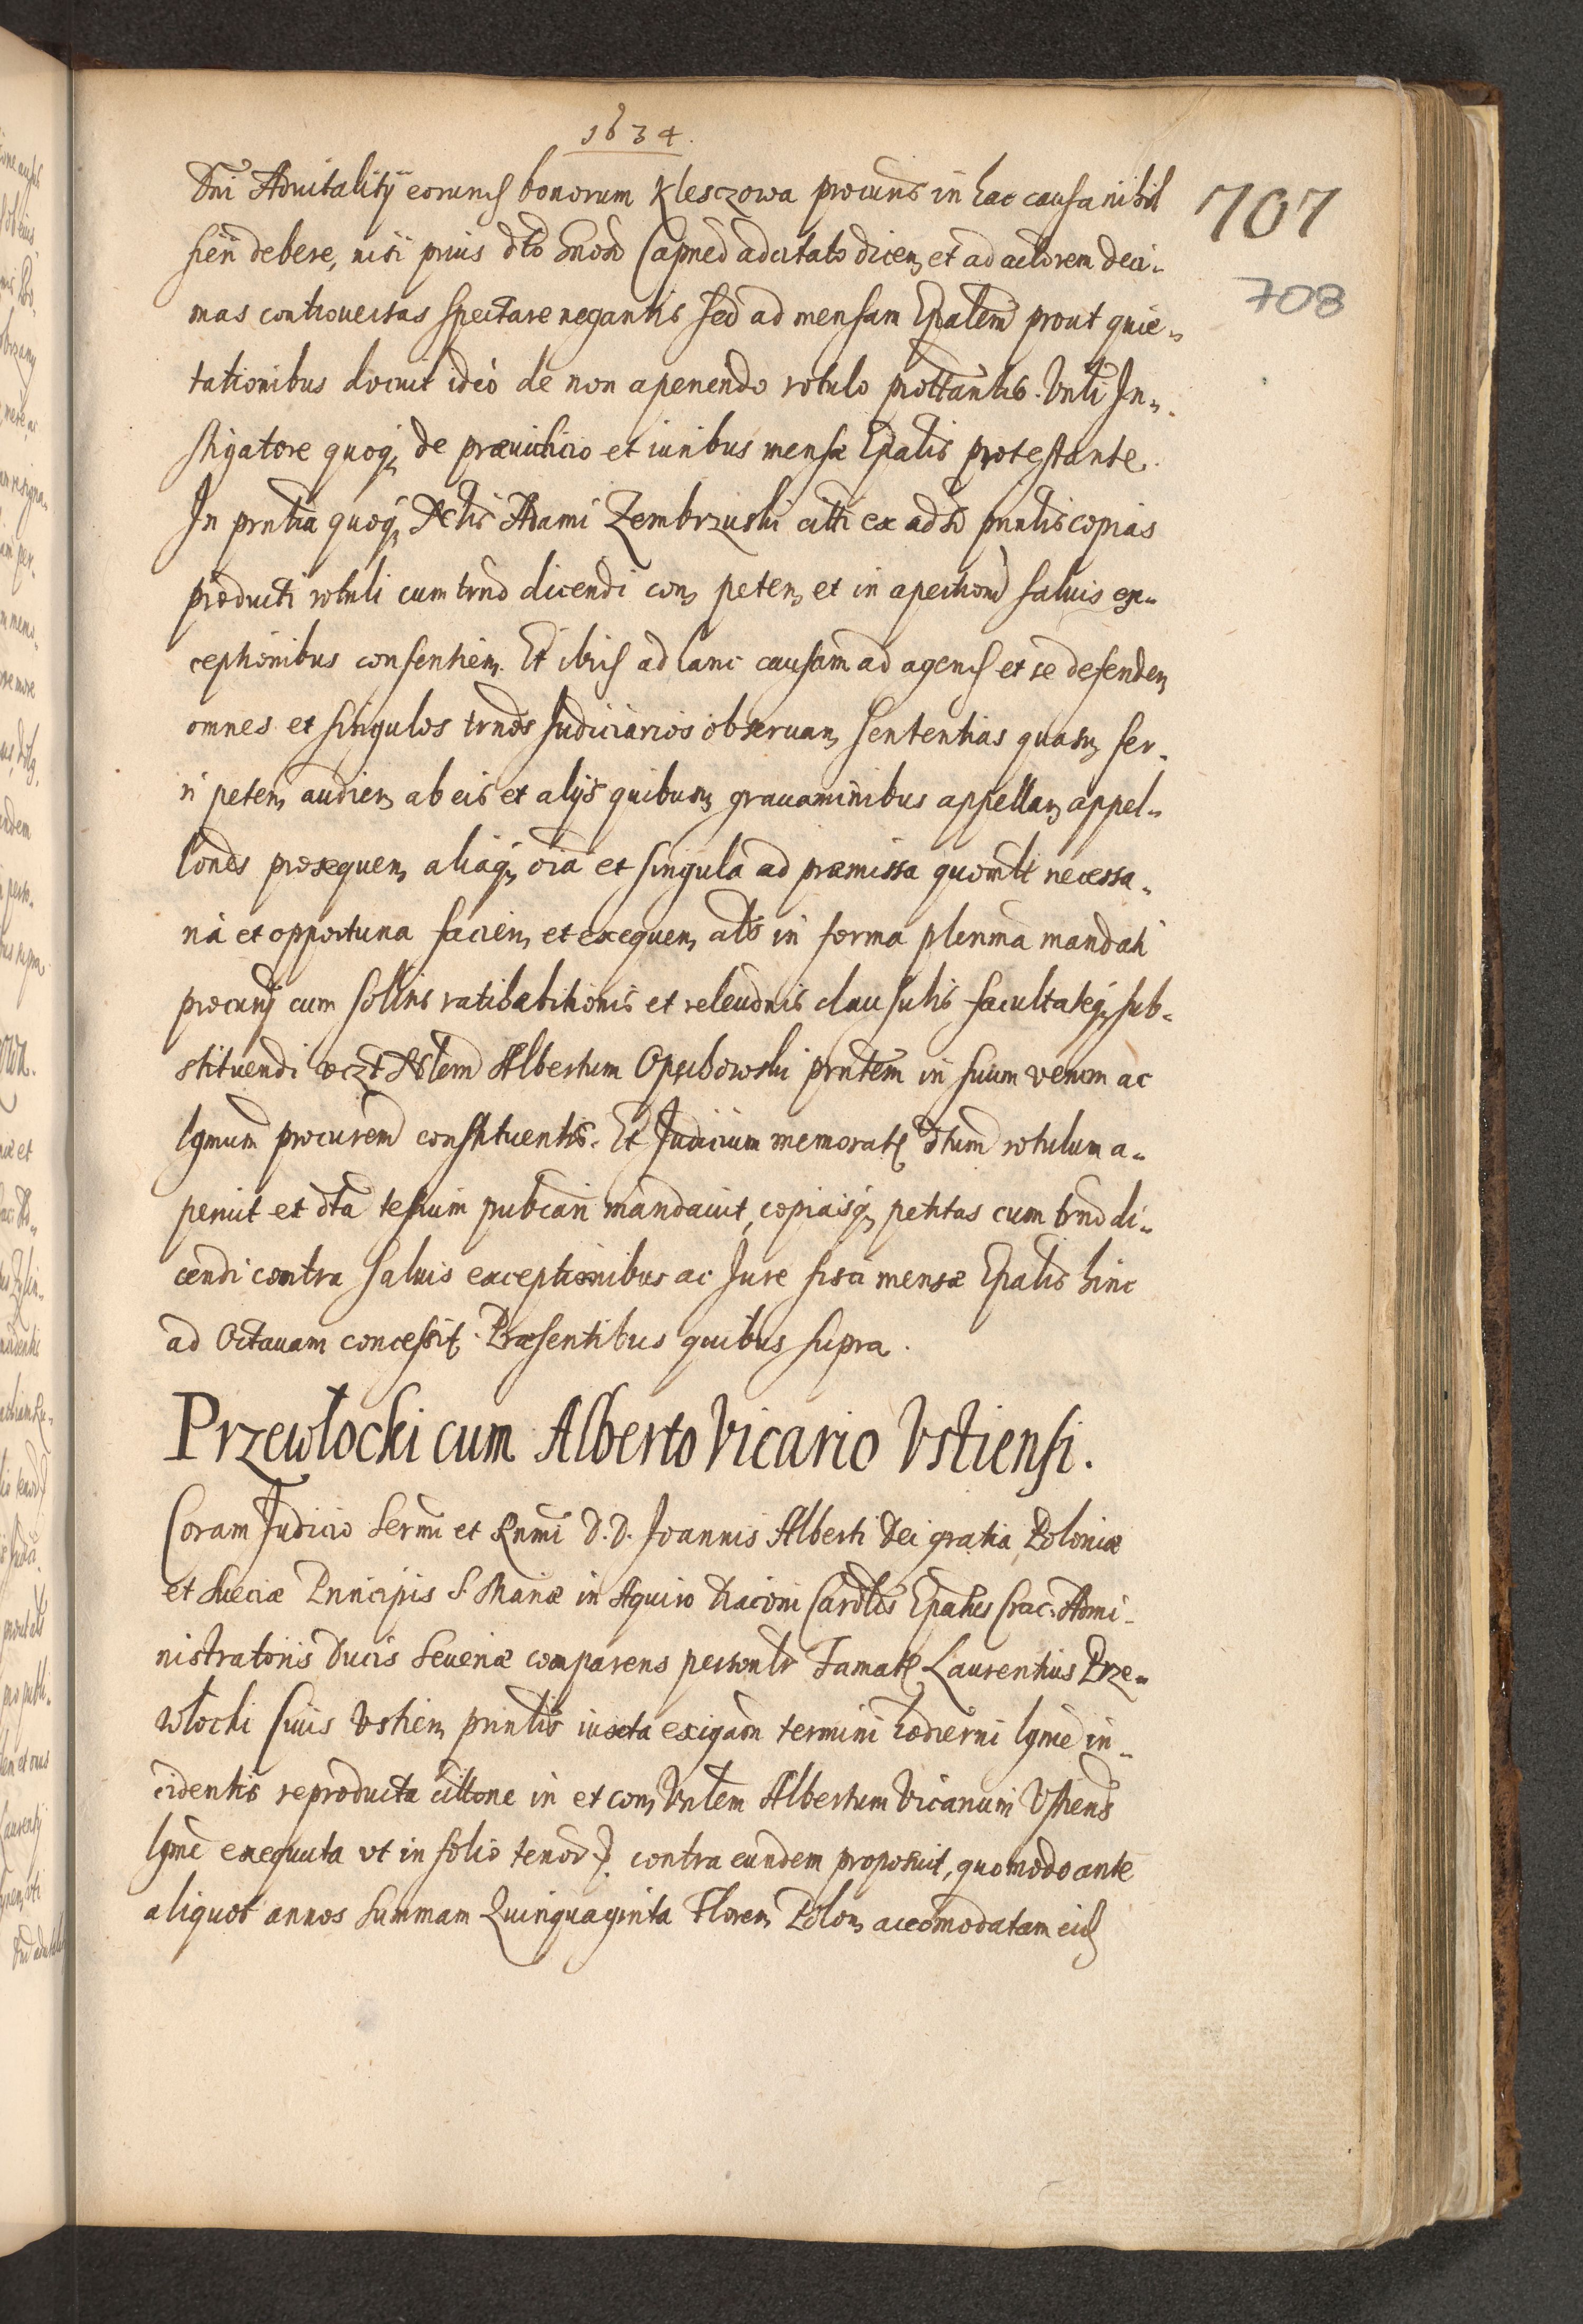 1634.
707
708
Dni Aduitalitij eorund bonorum Klesczowa procuris in hac causa nihil
fieri debere, nisi prius dto Capned adcitato dicen et ad actorem deci-
mas controuersas spectare negantis sed ad mensam Epalem prout quie-
tationibus docuit ideo de non aperiendo rotulo prottantis. Vnli In-
stigatore quoq de præiudicio et iuribus mensæ Epalis protestante.
In prntia quoq Actis Adami Zembrzuski citti ex adso prntis copias
producti rotuli cum trno dicendi con peten et in apertiond saluis ex-
ceptionibus consentien. Et ibid ad hanc causam ad agend et se defenden
omnes et singulos trnos Judiciarios obseruan sententias quasun fer-
ri peten audien ab eis et alijs quibusun grauaminibus appellan appel-
lones prosequen aliaq oia et singula ad præmissa quomlt necessa-
ria et opportuna facien et exequen als in forma plenma mandati
procurij cum sollris ratihabitionis et releuonis clausulis facultateq sub-
stituendi vczt Ablem Albertum Opsibowski prntem in suum verum ac
lgmum procurem constituentis. Et Judicium memorat dtum rotulum a-
periut et dta testium pubcari mandauit, copiasq petitas cum trno di-
cendi contra saluis exceptionibus ac Jure fisci mensæ Epalis hinc
ad Octauam concessit. Præsentibus quibus supra.
Przewłocki cum Alberto Vicario Vstiensi.
Coram Judicio Sermi et Rnmi D. D. Joannis Alberti Dei gratia Poloniæ
et Sueciæ Principis S. Mariæ in Aquiro Diaconi Cardlis Epatus Crac. Admi-
nistratoris Ducis Seueriæ comparens personlr Famat Laurentius Prze-
włocki Ciuis Vstien prntis iuxta exigaon termini hodierni lgme in-
cidentis reproducta cittone in et con Vnlem Albertum Vicarium Vstiens
lgme exequuta vt in folio tenor contra eundem proposuit, quomodo ante
aliquot annos Summam Quinquaginta Floren Polon accomodatam eid